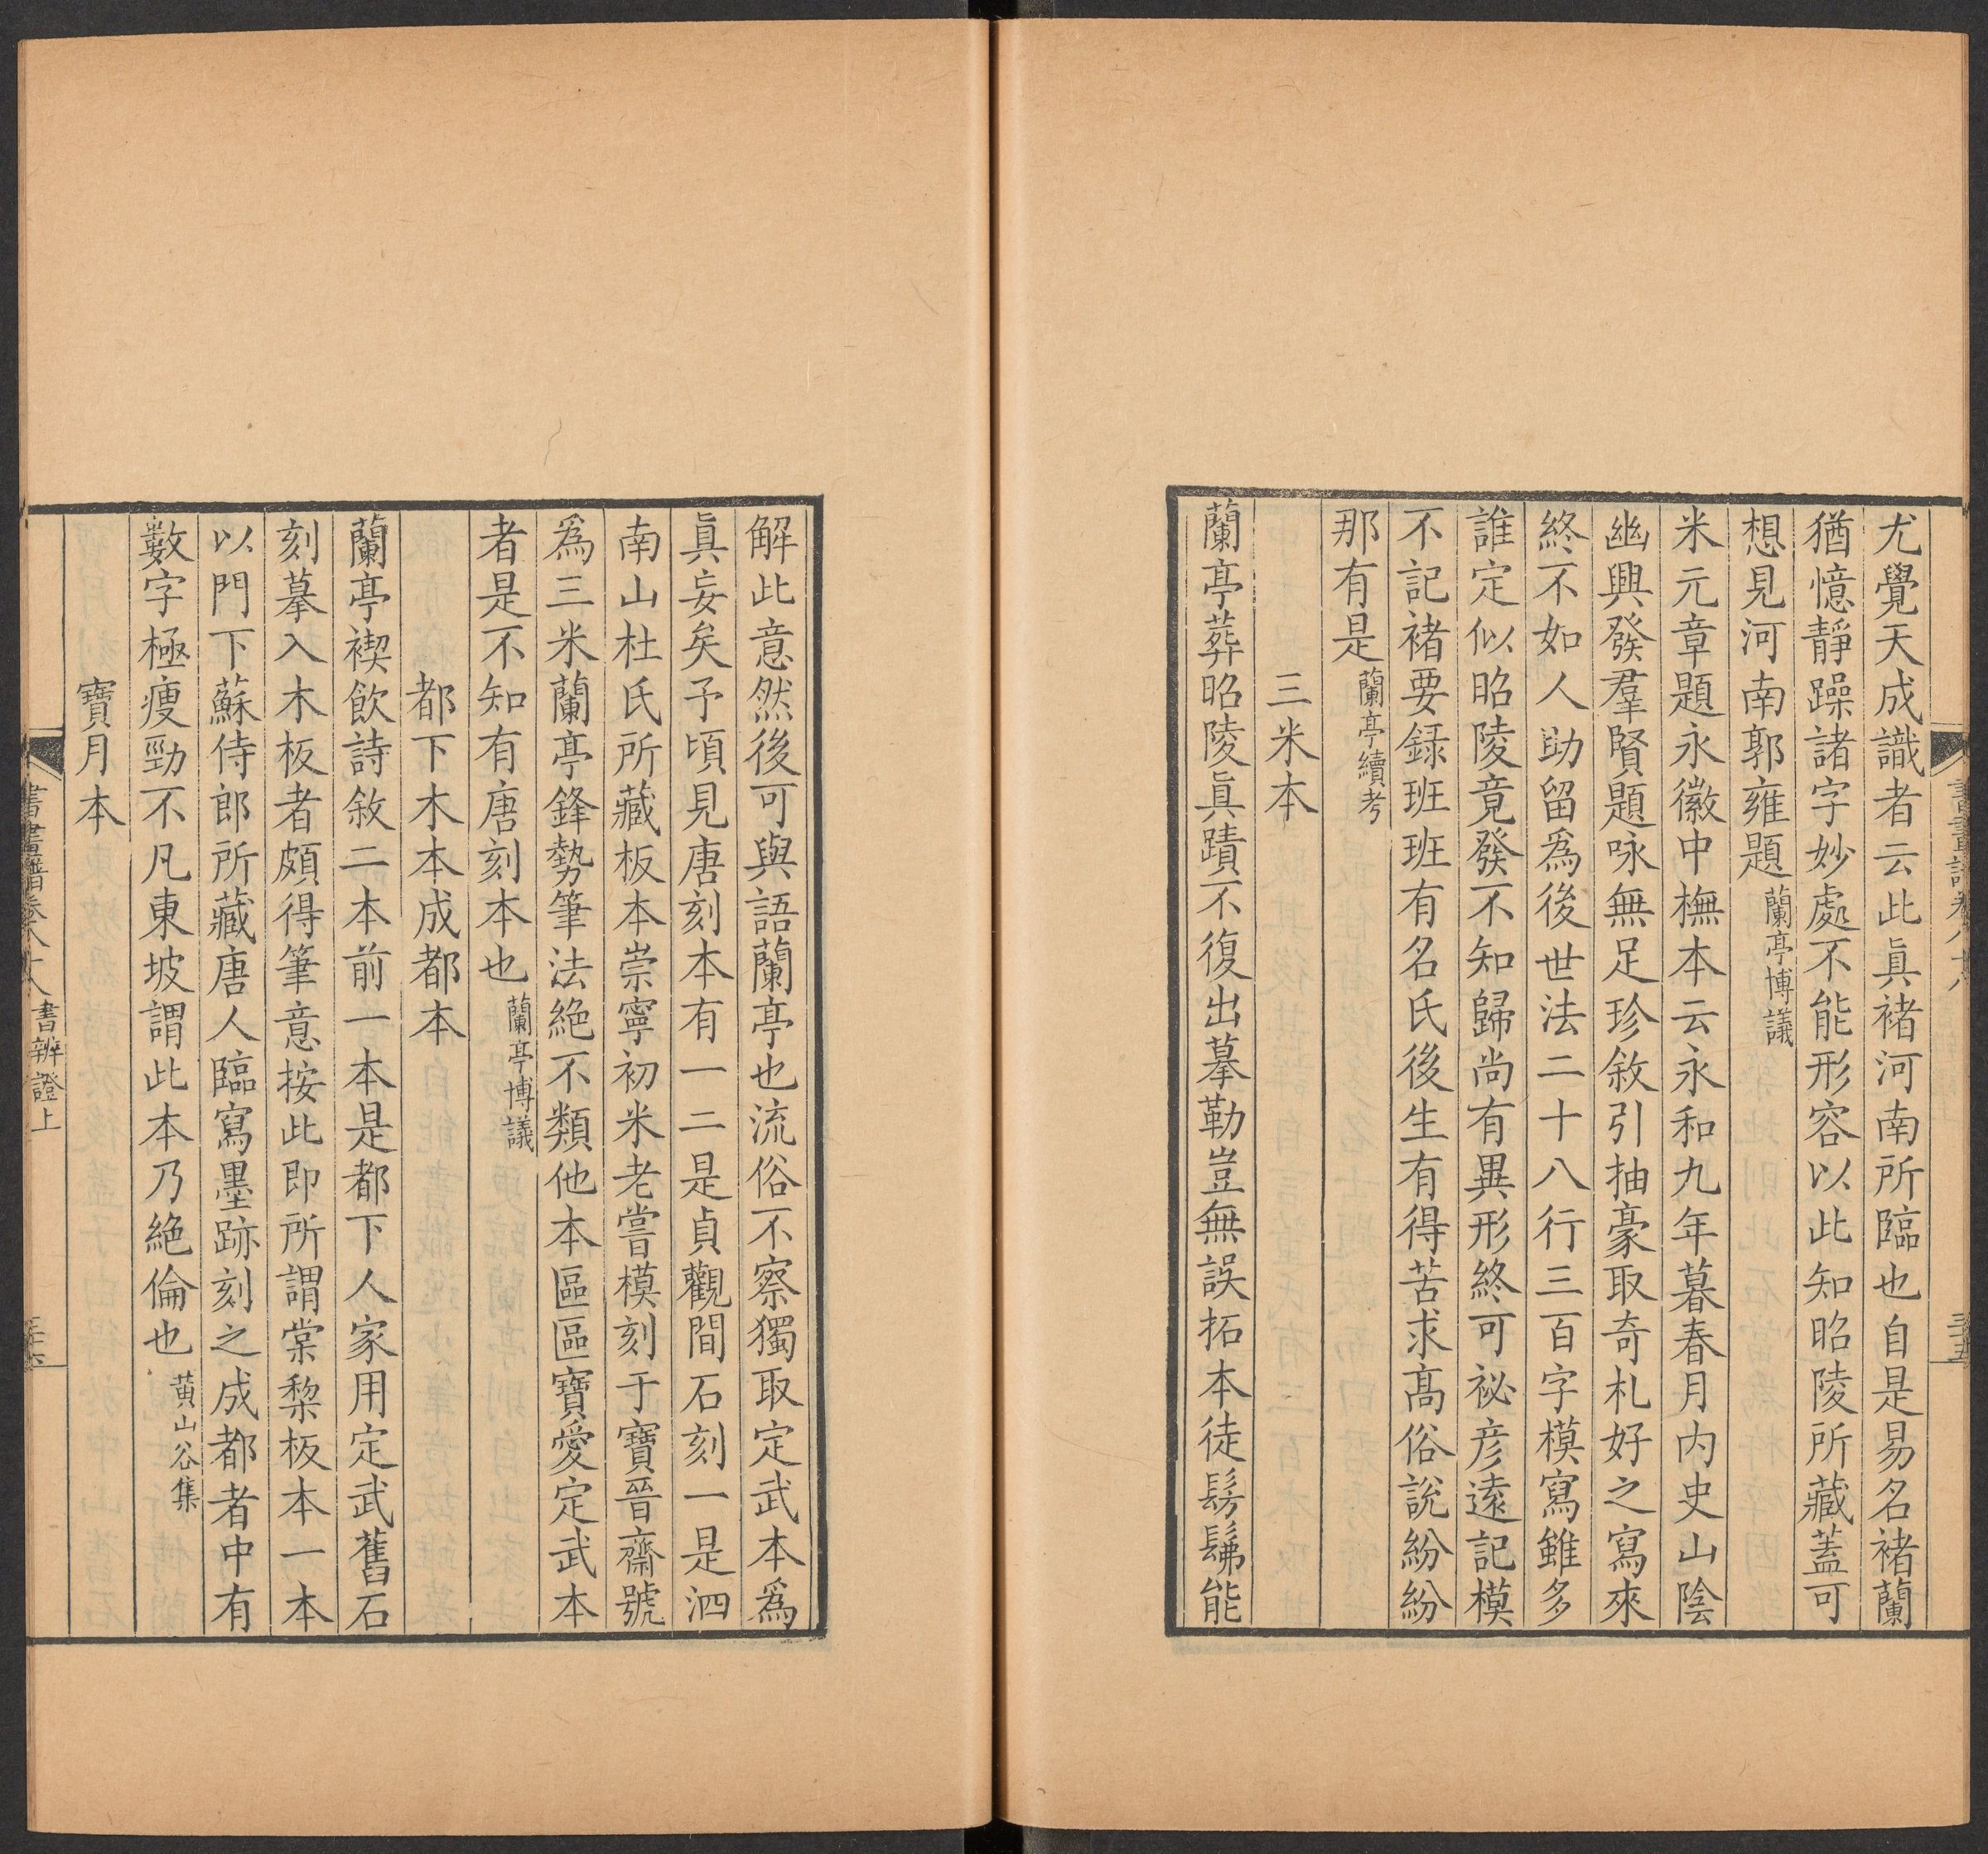 尤覺天成識者云此眞褚河南所臨也自是易名褚蘭
猶憶靜躁諸字妙處不能形容以此知昭陵所藏蓋可
想見河南郭雍題蘭亭博議
米元章題永徽中橅本云永和九年暮春月內史山陰
幽興發羣賢題咏無足珍敘引抽豪取奇札好之寫來
終不如人助留爲後世法二十八行三百字模寫雖多
誰定似昭陵竟發不知歸尚有異形終可祕彥遠記模
不記褚要録班班有名氏後生有得苦求高俗說紛紛
那有是蘭亭續考
三米本
蘭亭葬昭陵眞蹟不復出摹勒豈無誤拓本徒髣髴能
解此意然後可與語蘭亭也流俗不察獨取定武本爲
眞妄矣予頃見唐刻本有一二是貞觀間石刻一是泗
南山杜氏所藏板本崇寧初米老嘗模刻于寶晉齋號
爲三米蘭亭鋒勢筆法絕不類他本區區寶愛定武本
者是不知有唐刻本也蘭亭博議
都下木本成都本
蘭亭禊飲詩敘二本前一本是都下人家用定武舊石
刻摹入木板者頗得筆意按此即所謂棠棃板本一本
以門下蘇侍郎所藏唐人臨寫墨跡刻之成都者中有
數字極瘦勁不凡東坡謂此本乃絕倫也黄山谷集
寶月本
書畫譜卷八十八 書辨證上